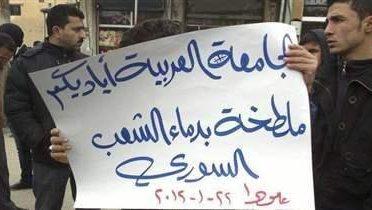 الجامعة العربية أياديكم
ملطخة بدماء الشعب
السوري
عامودا ٢٢-١-٢٠١٢